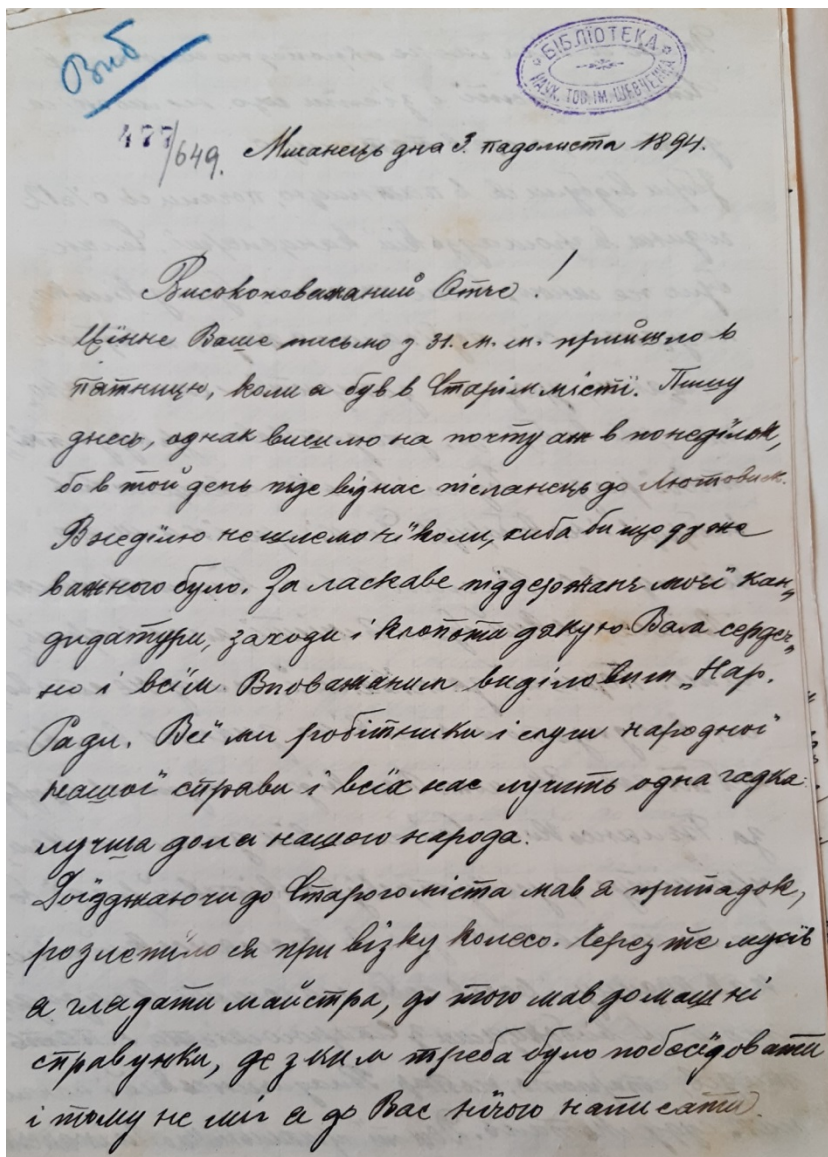 Виб
БІБЛЇОТЕКА
НАУК. ТОВ. ІМ. ШЕВЧЕНКА
477/649. Мшанець дня 3. падолиста 1894.
Високоповажаний Отче!
Цїнне Ваше письмо з 31. м. м. прийшло в
пятницю, коли я був в Старім місті. Пишу
днесь, однак вишлю на почту аж в понедїлок,
бо в той день піде від нас післанець до Лютовиск.
В недїлю не шлемо нїколи, хиба би що дуже
важного було. За ласкаве піддержанє моєї кан„
дидатури, заходи і клопоти дякую Вам сердеч„
но і всїм Вповажаним видїловим „Нар.
Ради. Всї ми робітники і слуги народної
нашої справи і всїх нас лучить одна гадка:
лучша доля нашого народа.
Доїзджаючи до Старого міста мав я припадок,
розлетїло ся при візку колесо. Через те мусїв
я глядати майстра, до того мав домашні
справунки, де з ким треба було побесїдовати
і тому не міг я до Вас нїчого написати.